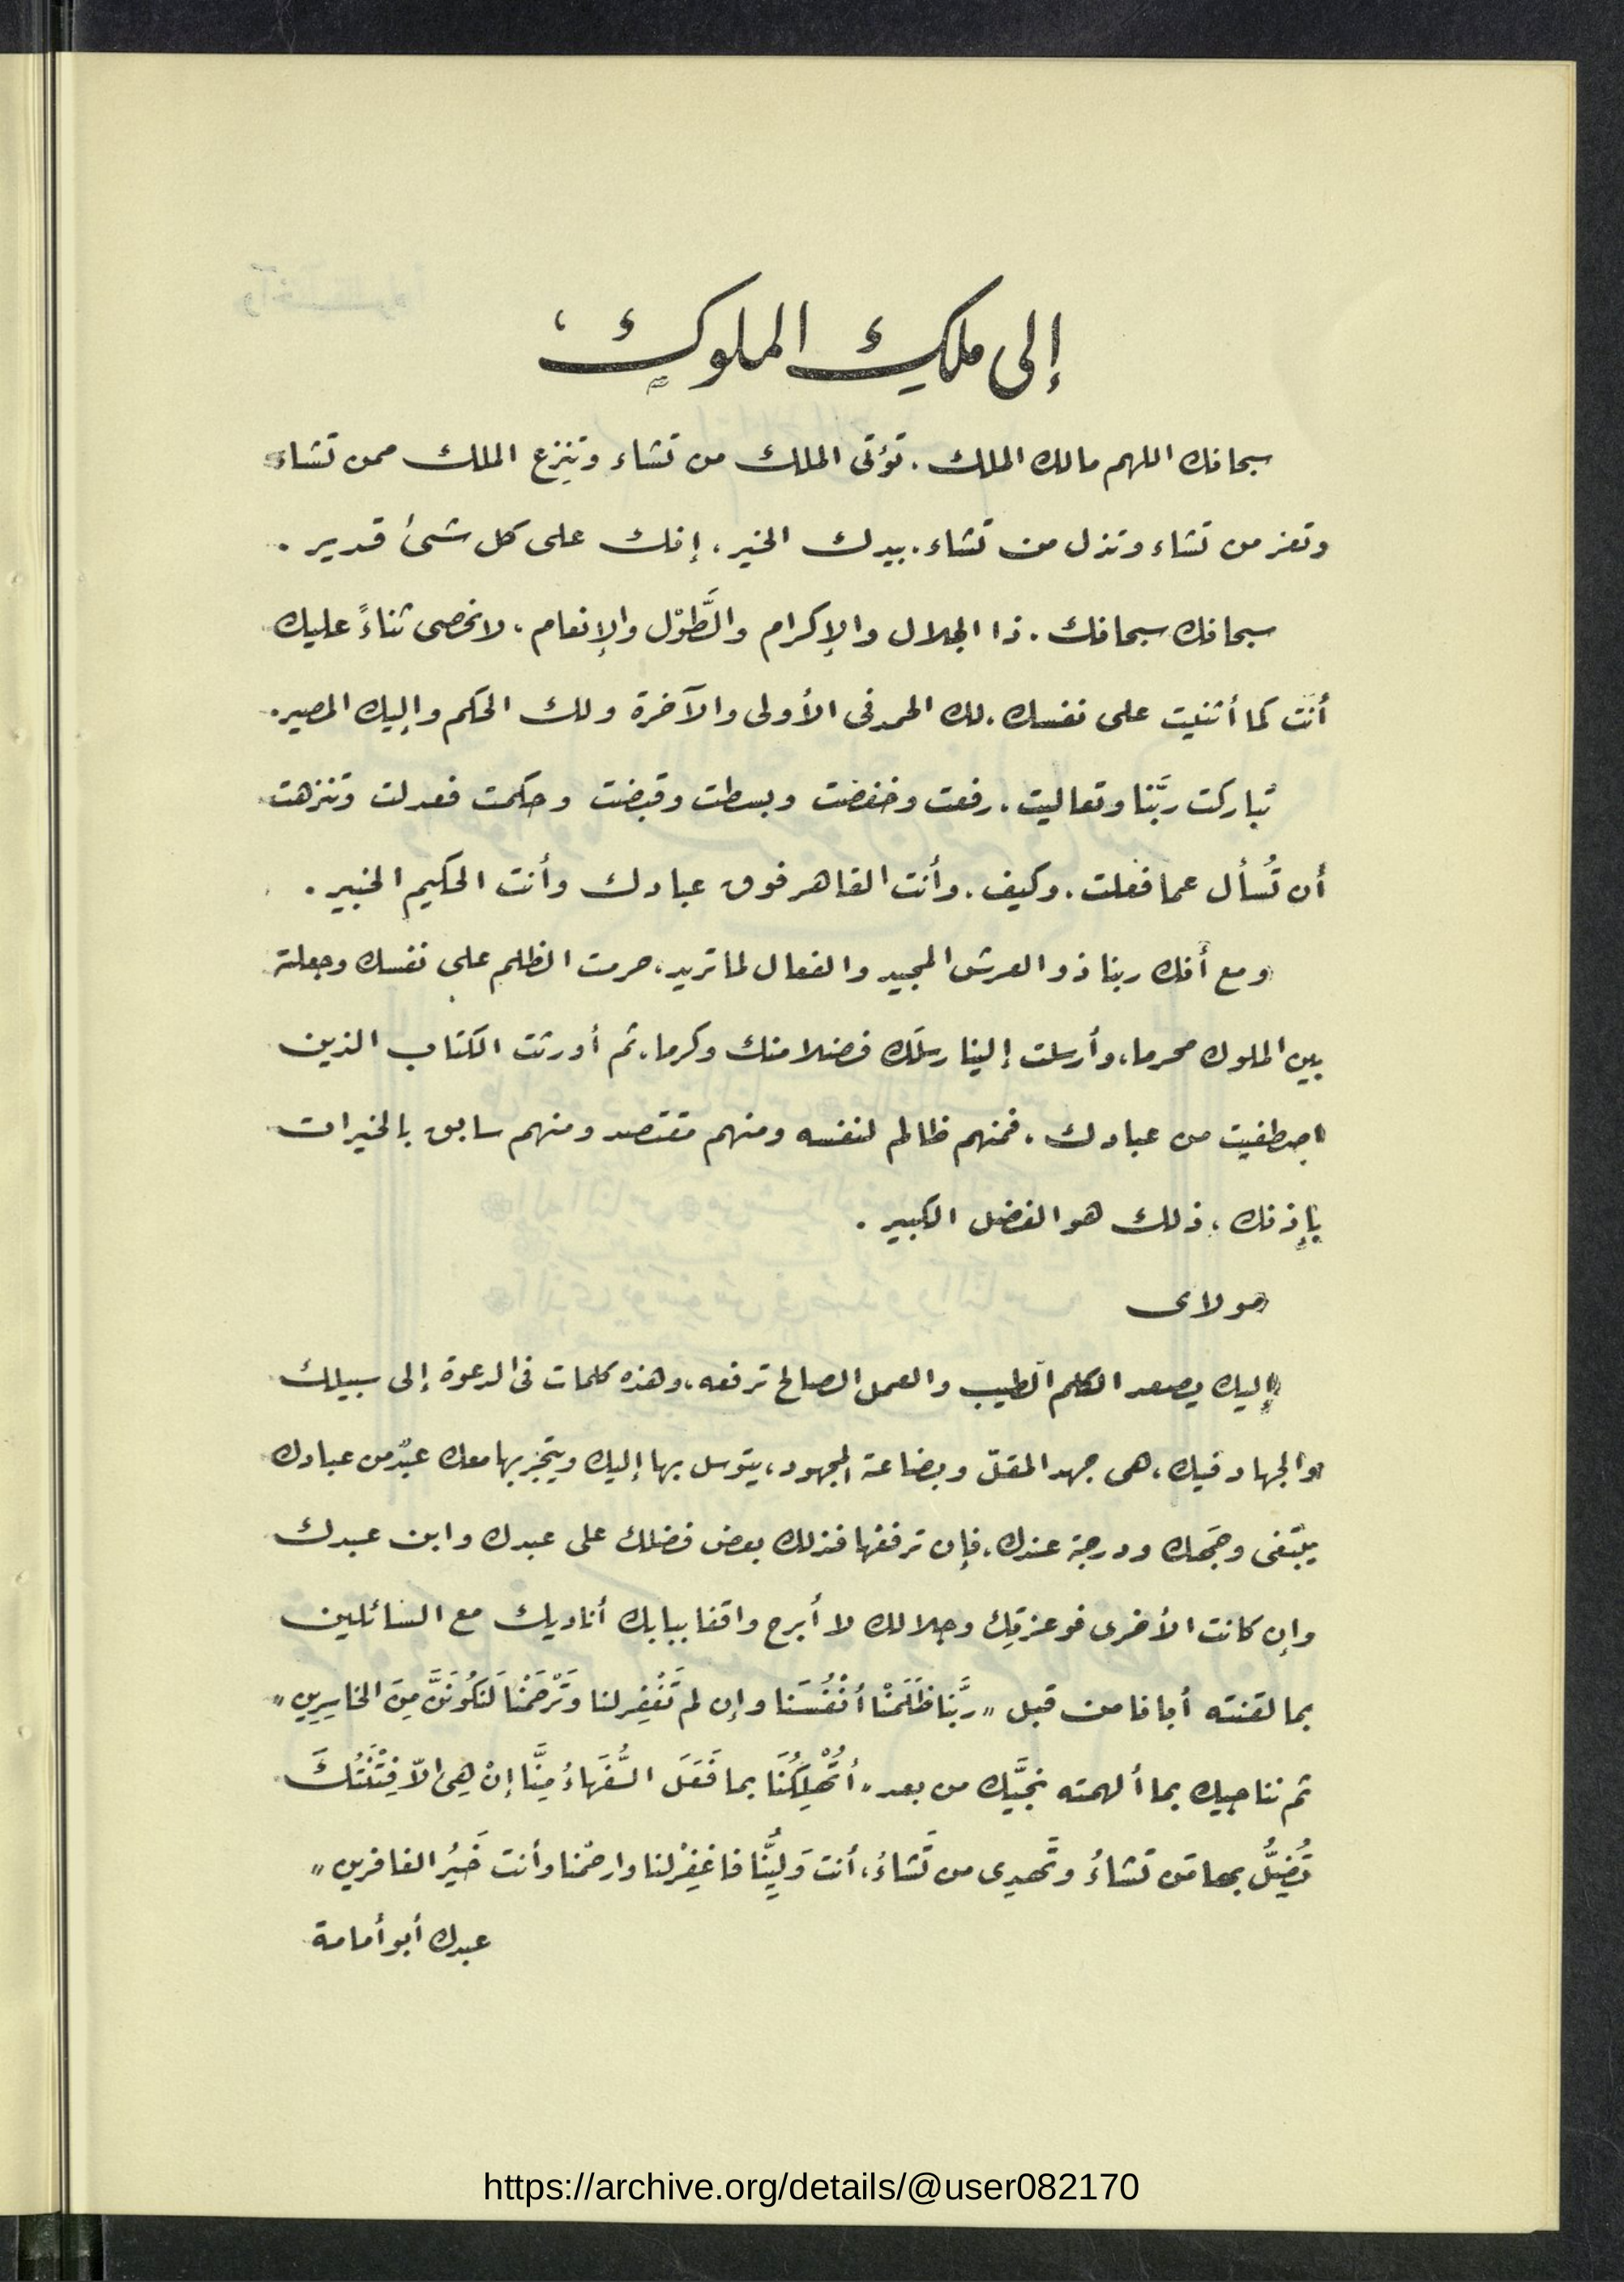 إلى ملك الملوك،
سبحانك اللهم مالك الملك. تؤتى الملك من تشاء وتنزع الملك ممن تشاء
وتعز من تشاء وتذل من تشاء. بيدك الخير. إنك على كل شئ قدير.
سبحانك سبحانك. ذا الجلال والإكرام والطَّوْل والإنعام. لا نحصى ثناءً عليك
أنت كما أثنيت على نفسك. لك الحمد فى الأولى والآخرة ولك الحكم وإليك المصير.
تباركت ربَّنا وتعاليت. رفعت وخفضت وبسطت وقبضت وحكمت فعدلت وتنزهت
أن تُسأل عما فعلت. وكيف. وأنت القاهر فوق عبادك وأنت الحكيم الخبير.
ومع أنك ربنا ذو العرش المجيد والفعال لما تريد، حرمت الظلم على نفسك وجعلته
بين الملوك محرما، وأرسلت إلينا رسلك فضلا منك وكرما، ثم أورثت الكتاب الذين
اصطفيت من عبادك، فمنهم ظالم لنفسه ومنهم مقتصد ومنهم سابق بالخيرات
بإذنك، ذلك هو الفضل الكبير.
مولاى
إليك يصعد الكلم الطيب والعمل الصالح ترفعه، وهذه كلمات فى الدعوة إلى سبيلك
والجهاد فيك، هى جهد المقلّ وبضاعة المجهود، يتوسل بها إليك ويتجر بها معك عبدٌ من عبادك
يبتغى وجهك ودرجة عندك. فإن ترفعها فذلك بعض فضلك على عبدك وابن عبدك
وإن كانت الأخرى فوعزتِك وجلالك لا أبرح واقفا ببابك أناديك مع السائلين
بما لقنته أبانا من قبل "ربَّنا ظَلَمْنا أنْفُسَنا وإن لم تَغْفِر لنا وَتَرْحَمْنا لَنَكُونَنَّ مِنَ الخاسِرِين"
ثم نناجيك بما ألهمته نجيَّك من بعد "أتُهْلِكُنَا بما فَعَلَ السُّفَهاءُ مِنَّا إنْ هِىَ إلاّ فِتْنَتُكَ
تُضِلُّ بها مَن تشاءُ وتَهدِى من تَشاءُ، أنت وَلِيُّنا فاغفِرْ لنا وارحمْنا وأنت خَيْرُ الغافرين"
عبدك أبو أمامة
https://archive.org/details/@user082170